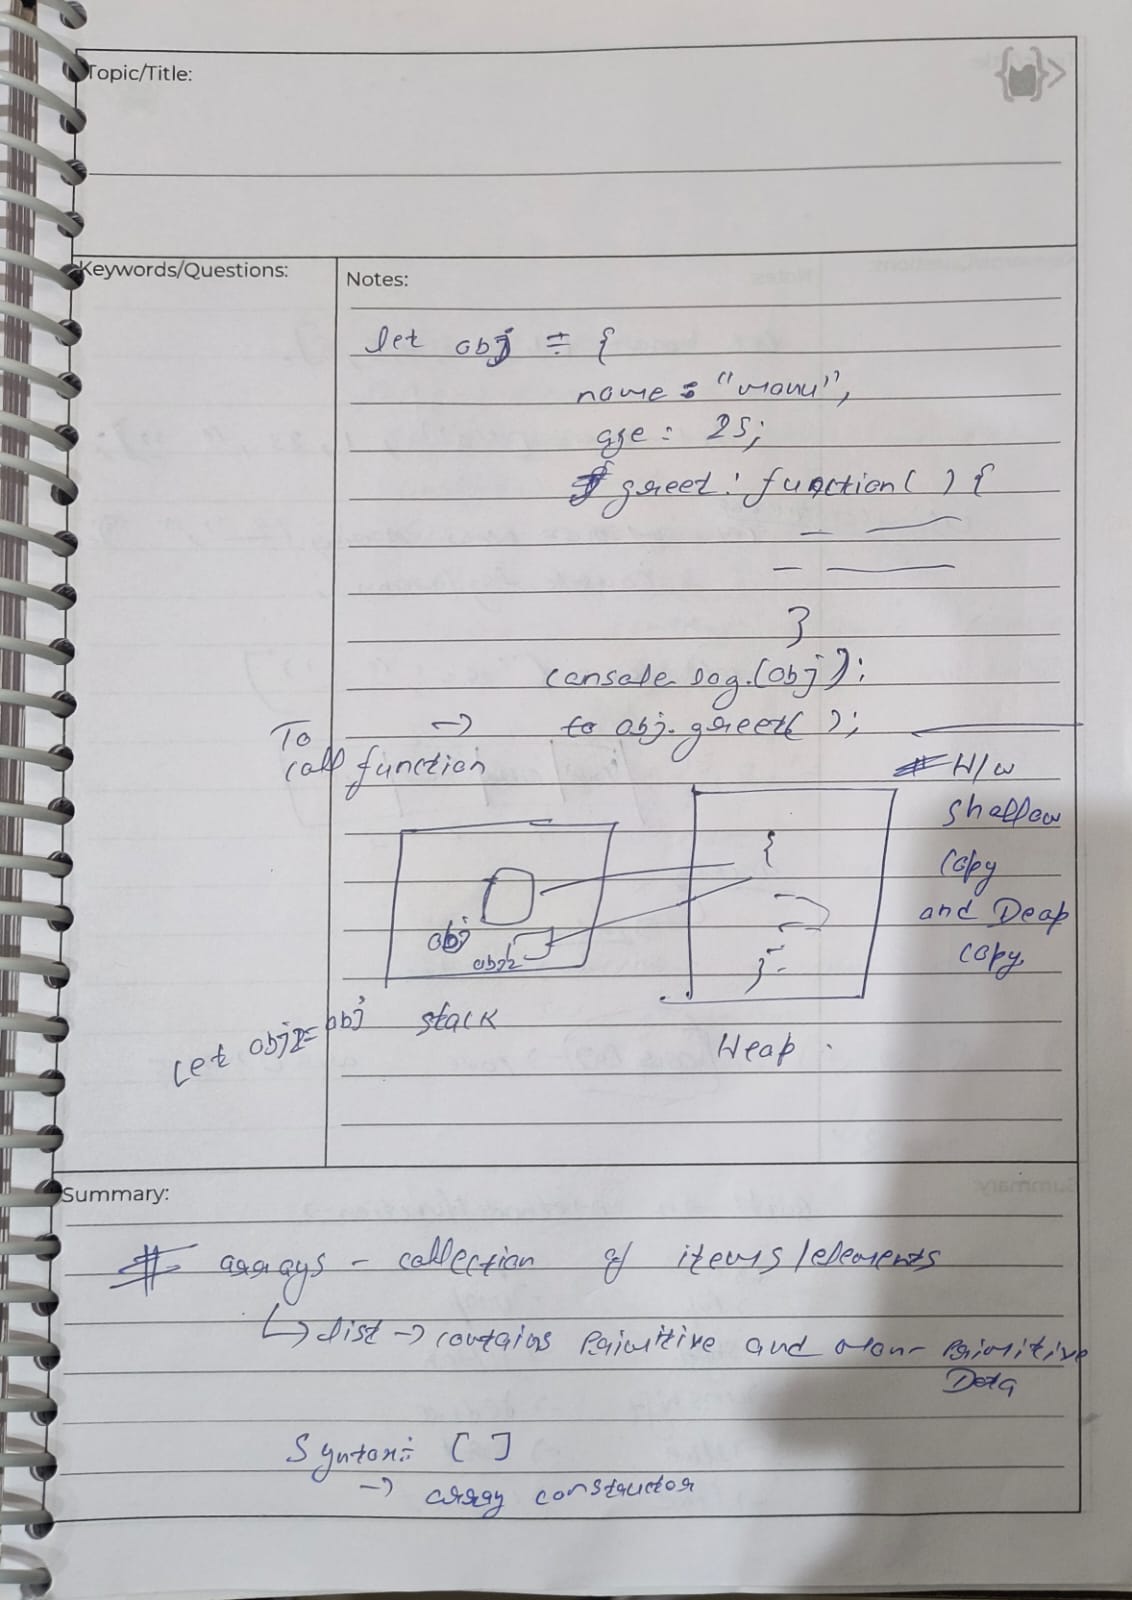 Topic/Title:
Keywords/Questions:
Notes:
let obj = {
name : "manu",
age : 25;
greet : function( ) {
}
console.log.(obj);
To → to obj.greet( );
call function
# H/w
shallow
copy
and Deap
copy
{
obj
obj2
}
let obj2=obj
stack
Heap
Summary:
# arrays - collection of items/elements
↳ list → contains Primitive and non-Primitive
Data
Syntax: [ ]
→ array constructor